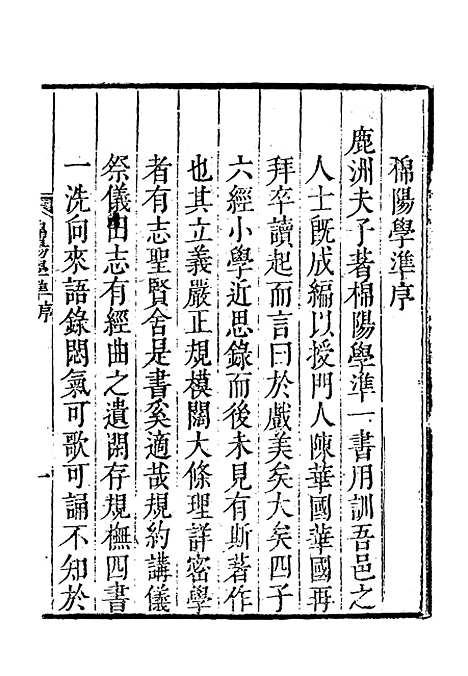 棉陽學準序
鹿洲夫子著棉陽學準一書用訓吾邑之
人士既成編以授門人陳華國華國再
拜卒讀起而言曰於戲美矣大矣四子
六經小學近思錄而後未見有斯著作
也其立義嚴正規模闊大條理詳密學
者有志聖賢舍是書奚適哉規約講儀
祭儀田志有經曲之遺閑存規橅四書
一洗向來語錄悶氣可歌可誦不知於
序
一